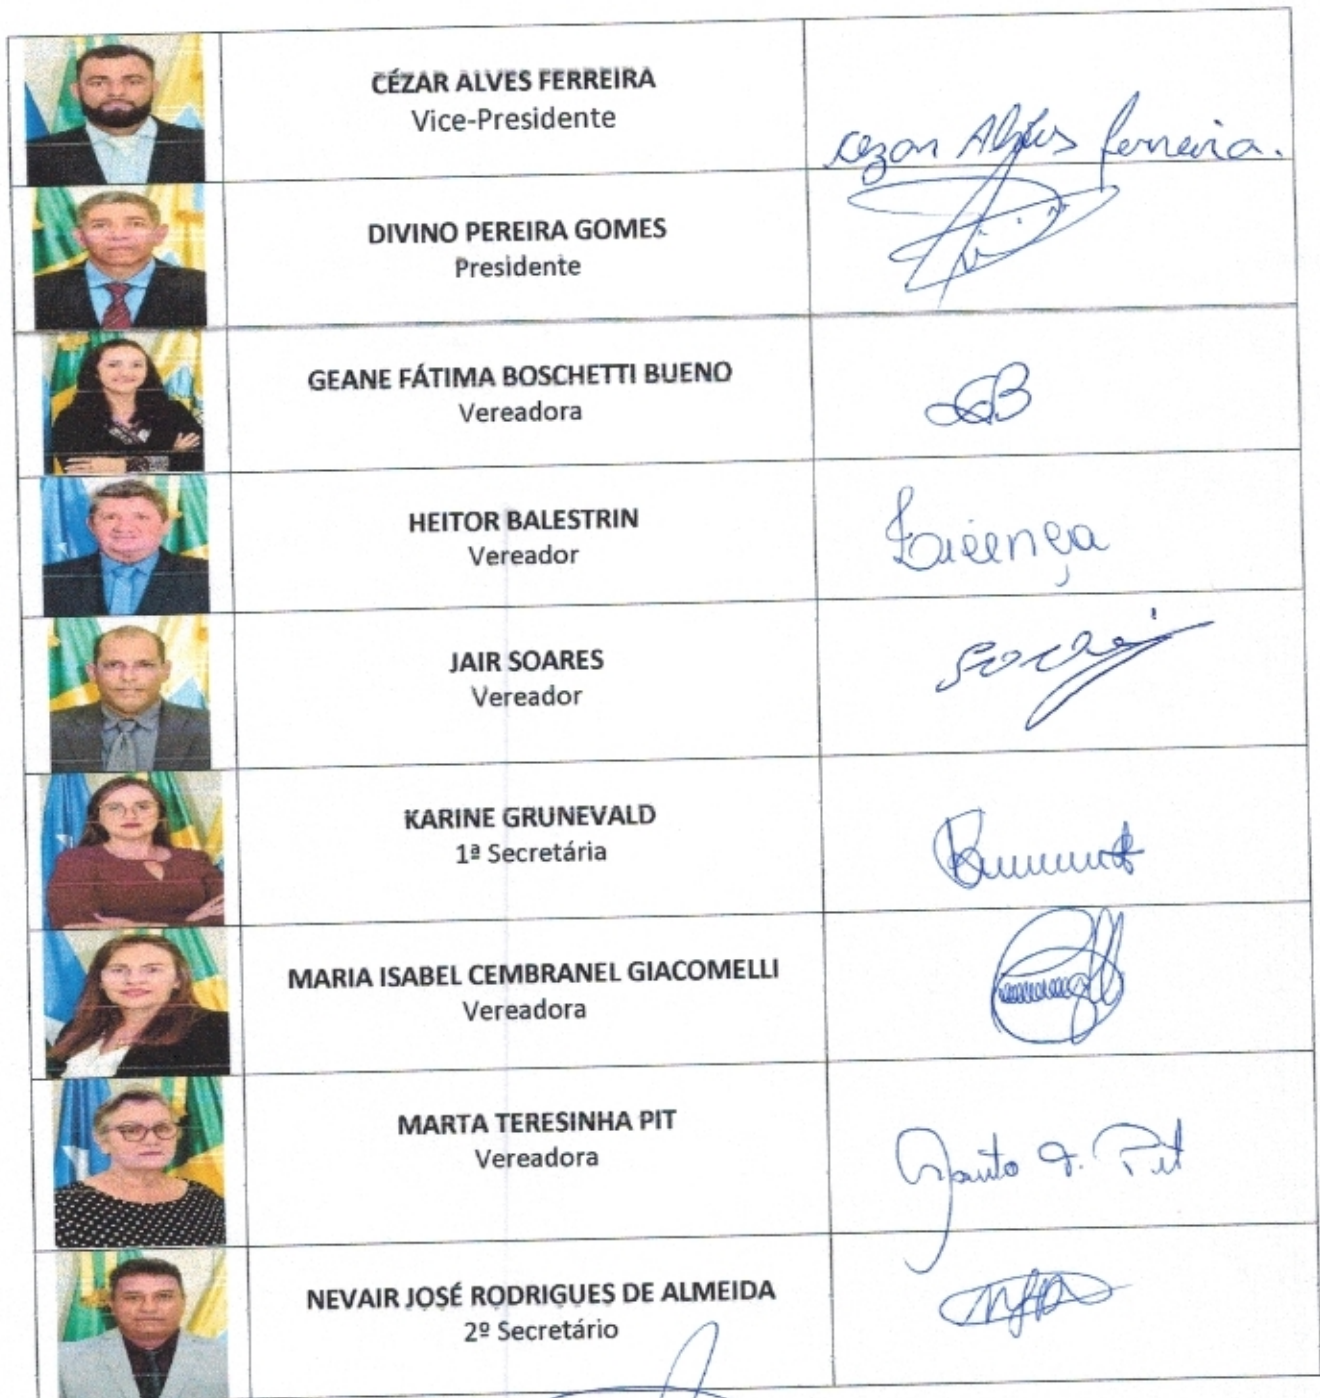 CÉZAR ALVES FERREIRA
Vice-Presidente
Cezar Alves Ferreira.
DIVINO PEREIRA GOMES
Presidente
GEANE FÁTIMA BOSCHETTI BUENO
Vereadora
HEITOR BALESTRIN
Vereador
Licença
JAIR SOARES
Vereador
KARINE GRUNEVALD
1ª Secretária
MARIA ISABEL CEMBRANEL GIACOMELLI
Vereadora
MARTA TERESINHA PIT
Vereadora
Marta T. Pit
NEVAIR JOSÉ RODRIGUES DE ALMEIDA
2º Secretário